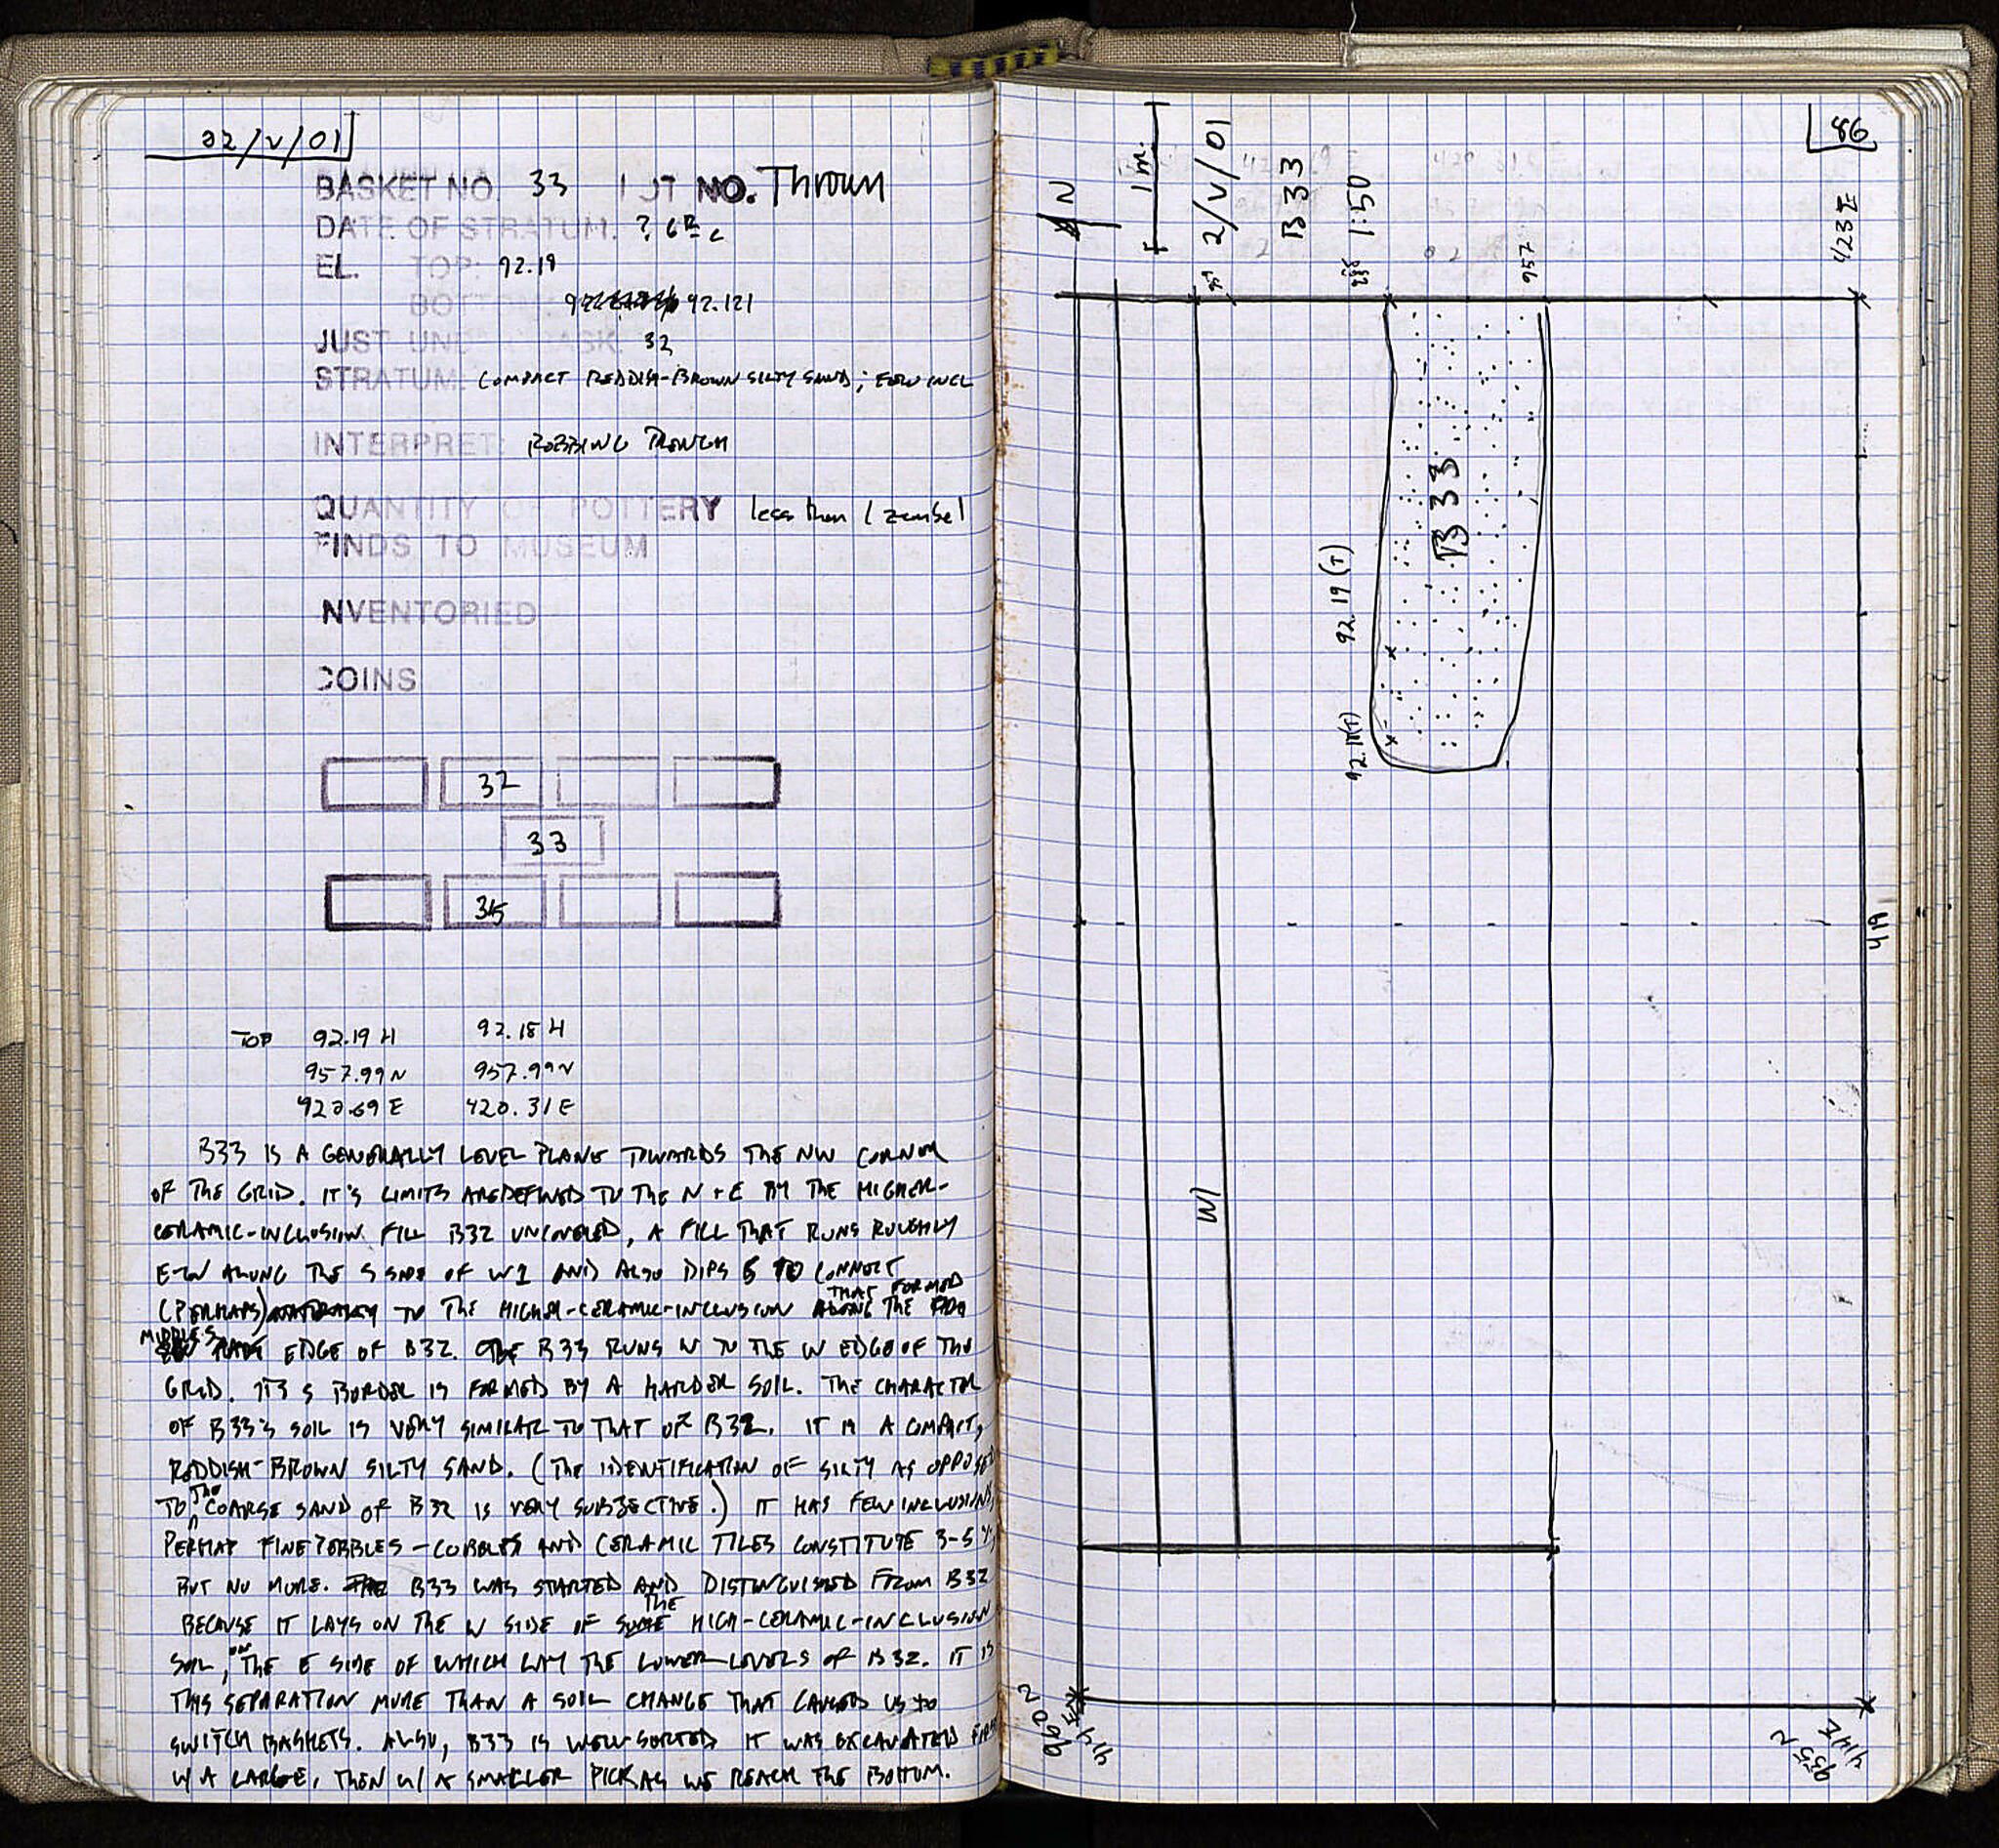 22/V/01
BASKET NO. 33 LOT NO. Thrown
DATE OF STRATUM: ? 6th c
EL. TOP: 92.19
BOTTOM: 92.121
JUST UNDER BASK. 32
STRATUM: COMPACT REDDISH-BROWN SILTY SAND; FEW INCL
INTERPRET: ROBBING TRENCH
QUANTITY OF POTTERY less than 1 zembel
FINDS TO MUSEUM
INVENTORIED
COINS
32
33
35
TOP 92.19 H 92.18 H
957.99 N 957.99 N
420.31 E
B33 IS A GENERALLY LEVEL PLANE TOWARDS THE NW CORNER
OF THE GRID. IT'S LIMITS ARE DEFINED TO THE N + E BY THE HIGHER-
CERAMIC-INCLUSION FILL B32 UNCOVERED, A FILL THAT RUNS ROUGHLY
E-W ALONG THE S SIDE OF W1 AND ALSO DIPS S TO CONNECT
(PERHAPS) TO THE HIGHER-CERAMIC-INCLUSION THAT FORMED THE
MIDDLES EDGE OF B32. B33 RUNS W TO THE W EDGE OF THE
GRID. ITS S BORDER IS FORMED BY A HARDER SOIL. THE CHARACTER
OF B33'S SOIL IS VERY SIMILAR TO THAT OF B32. IT IS A COMPACT,
REDDISH-BROWN SILTY SAND. (THE IDENTIFICATION OF SILTY AS OPPOSED
TO THE COARSE SAND OF B32 IS VERY SUBJECTIVE.) IT HAS FEW INCLUSIONS,
PERHAP FINE PEBBLES - COBBLES AND CERAMIC TILES CONSTITUTE 3-5%,
BUT NO MORE. B33 WAS STARTED AND DISTINGUISHED FROM B32
BECAUSE IT LAYS ON THE W SIDE OF THE HIGH-CERAMIC-INCLUSION
SOIL, ON THE E SIDE OF WHICH LAY THE LOWER LEVELS OF B32. IT IS
THIS SEPARATION MORE THAN A SOIL CHANGE THAT CAUSED US TO
SWITCH BASKETS. ALSO, B33 IS WELL-SORTED IT WAS EXCAVATED FIRST
W/ A LARGE, THEN W/ A SMALLER PICK AS WE REACH THE BOTTOM.
86
N
1 m.
2/V/01
B33
1:50
957
423 E
B33
92.19 (T)
92.18(T)
419
W1
960 N
414 E
955 N
414 E